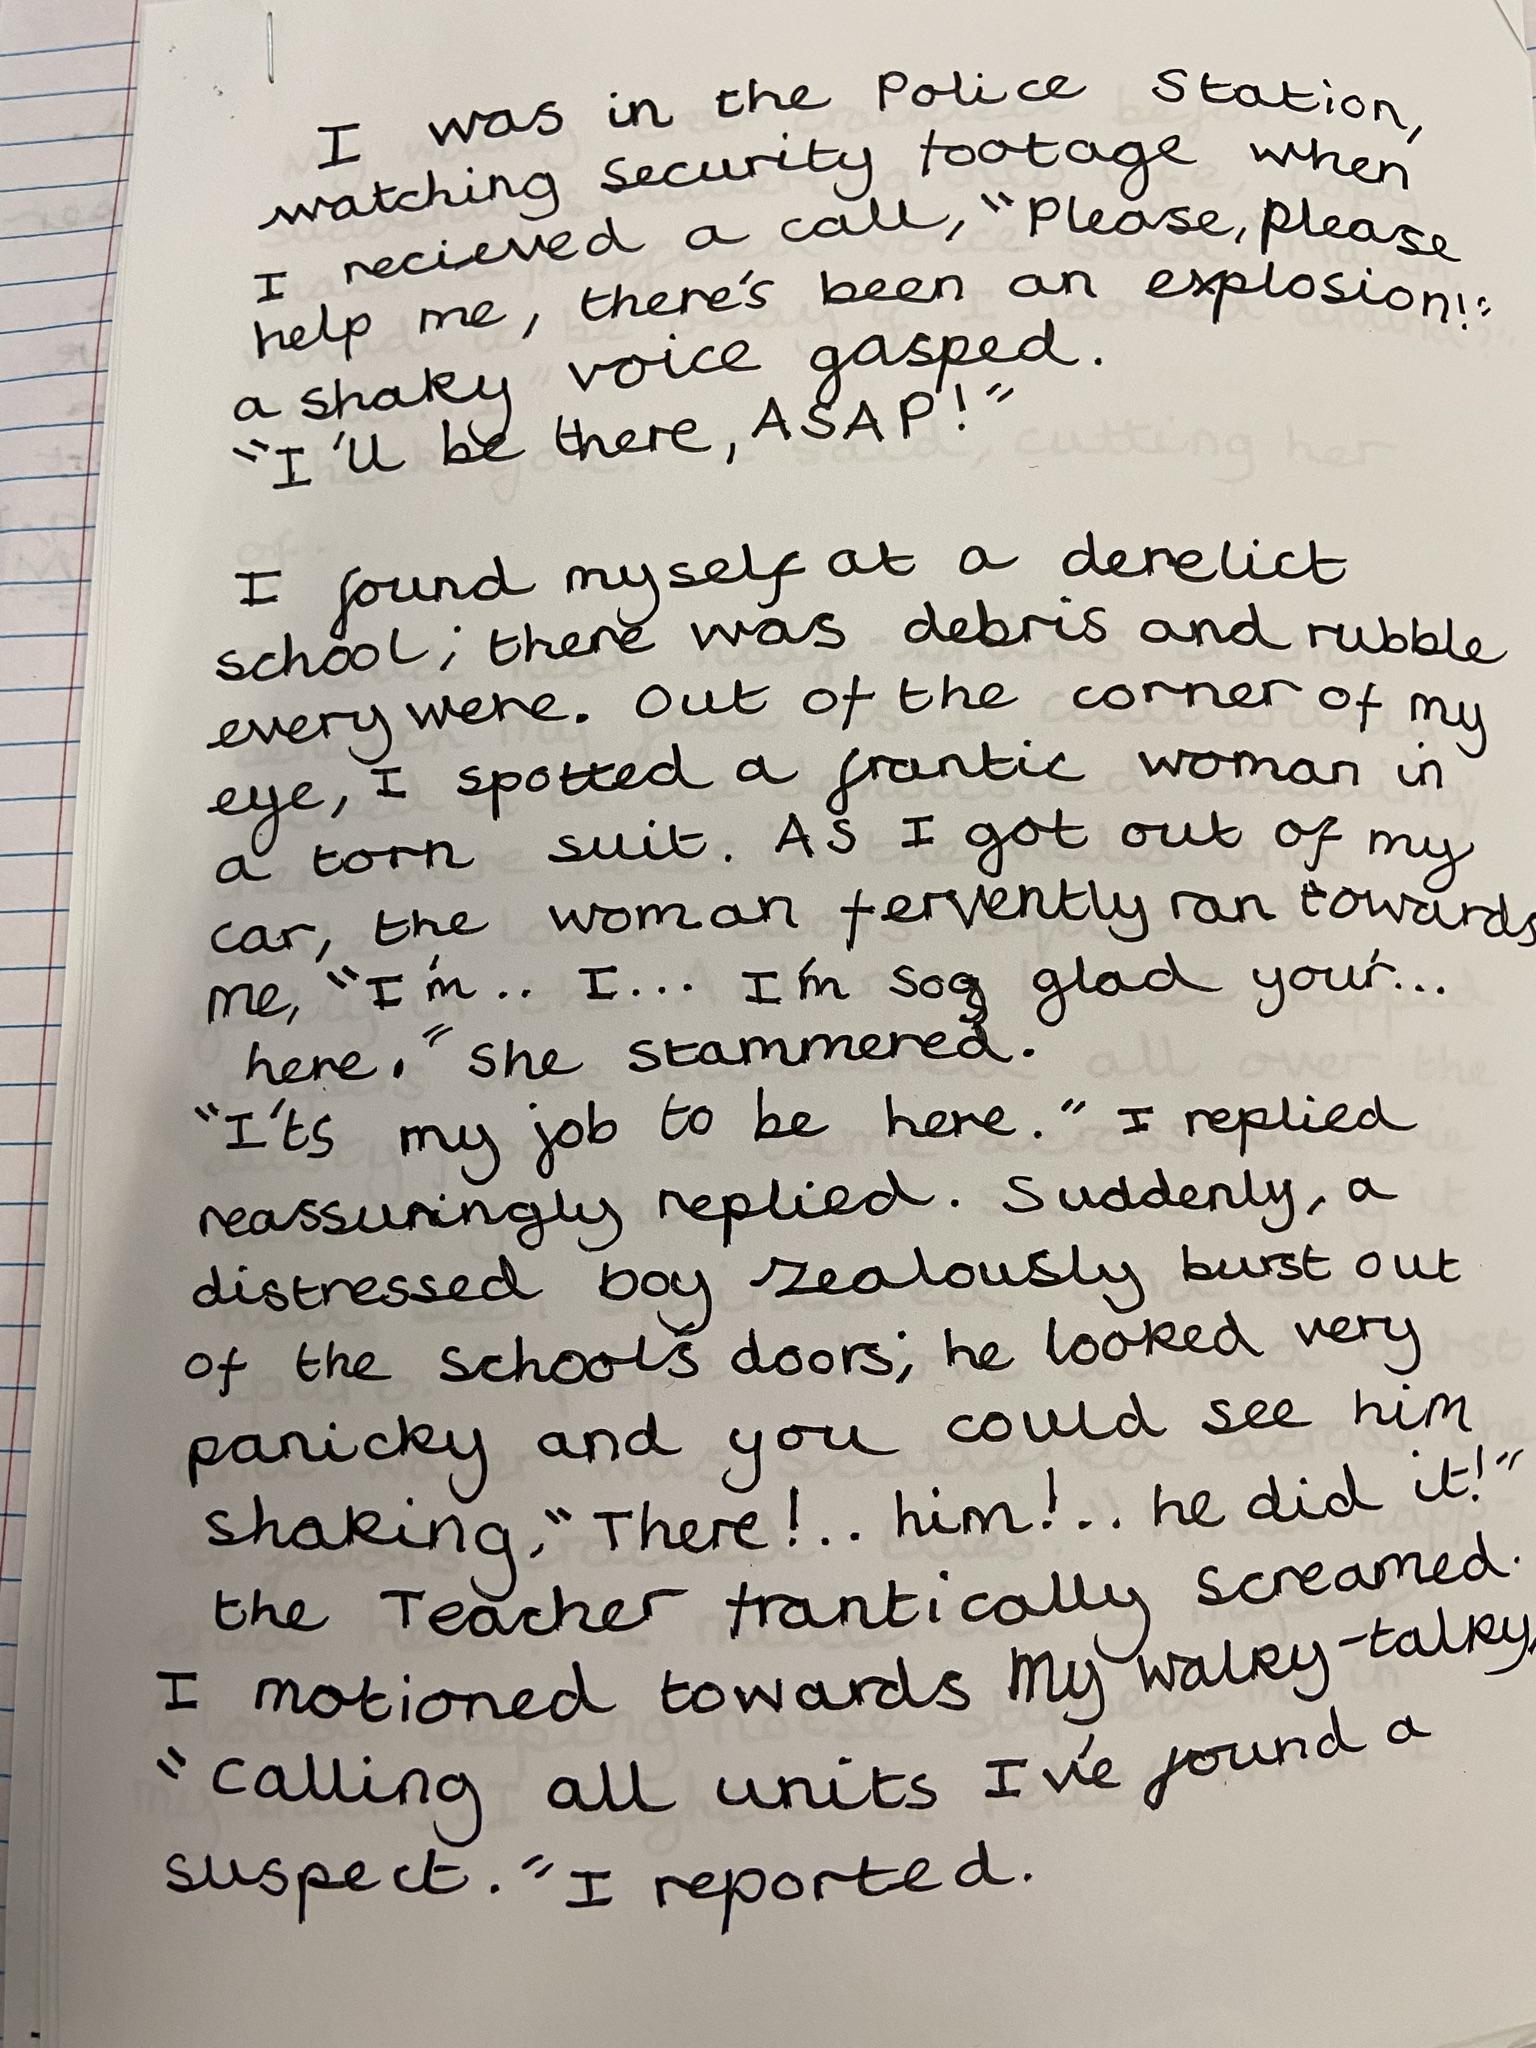 I was in the Police Station,
watching security footage when
I recieved a call, "Please, please
help me, there's been an explosion!"
a shaky voice gasped.
"I'll be there, ASAP!"
I found myself at a derelict
school; there was debris and rubble
everywere. Out of the corner of my
eye, I spotted a frantic woman in
a torn suit. As I got out of my
car, the woman fervently ran towards
me, "I'm.. I... I'm so glad your...
here." she stammered.
"I'ts my job to be here." I replied
reassuringly replied. Suddenly, a
distressed boy zealously burst out
of the school's doors; he looked very
panicky and you could see him
shaking, "There!.. him!.. he did it!"
the Teacher frantically screamed.
I motioned towards my walky-talky,
"Calling all units I v'e found a
suspect." I reported.